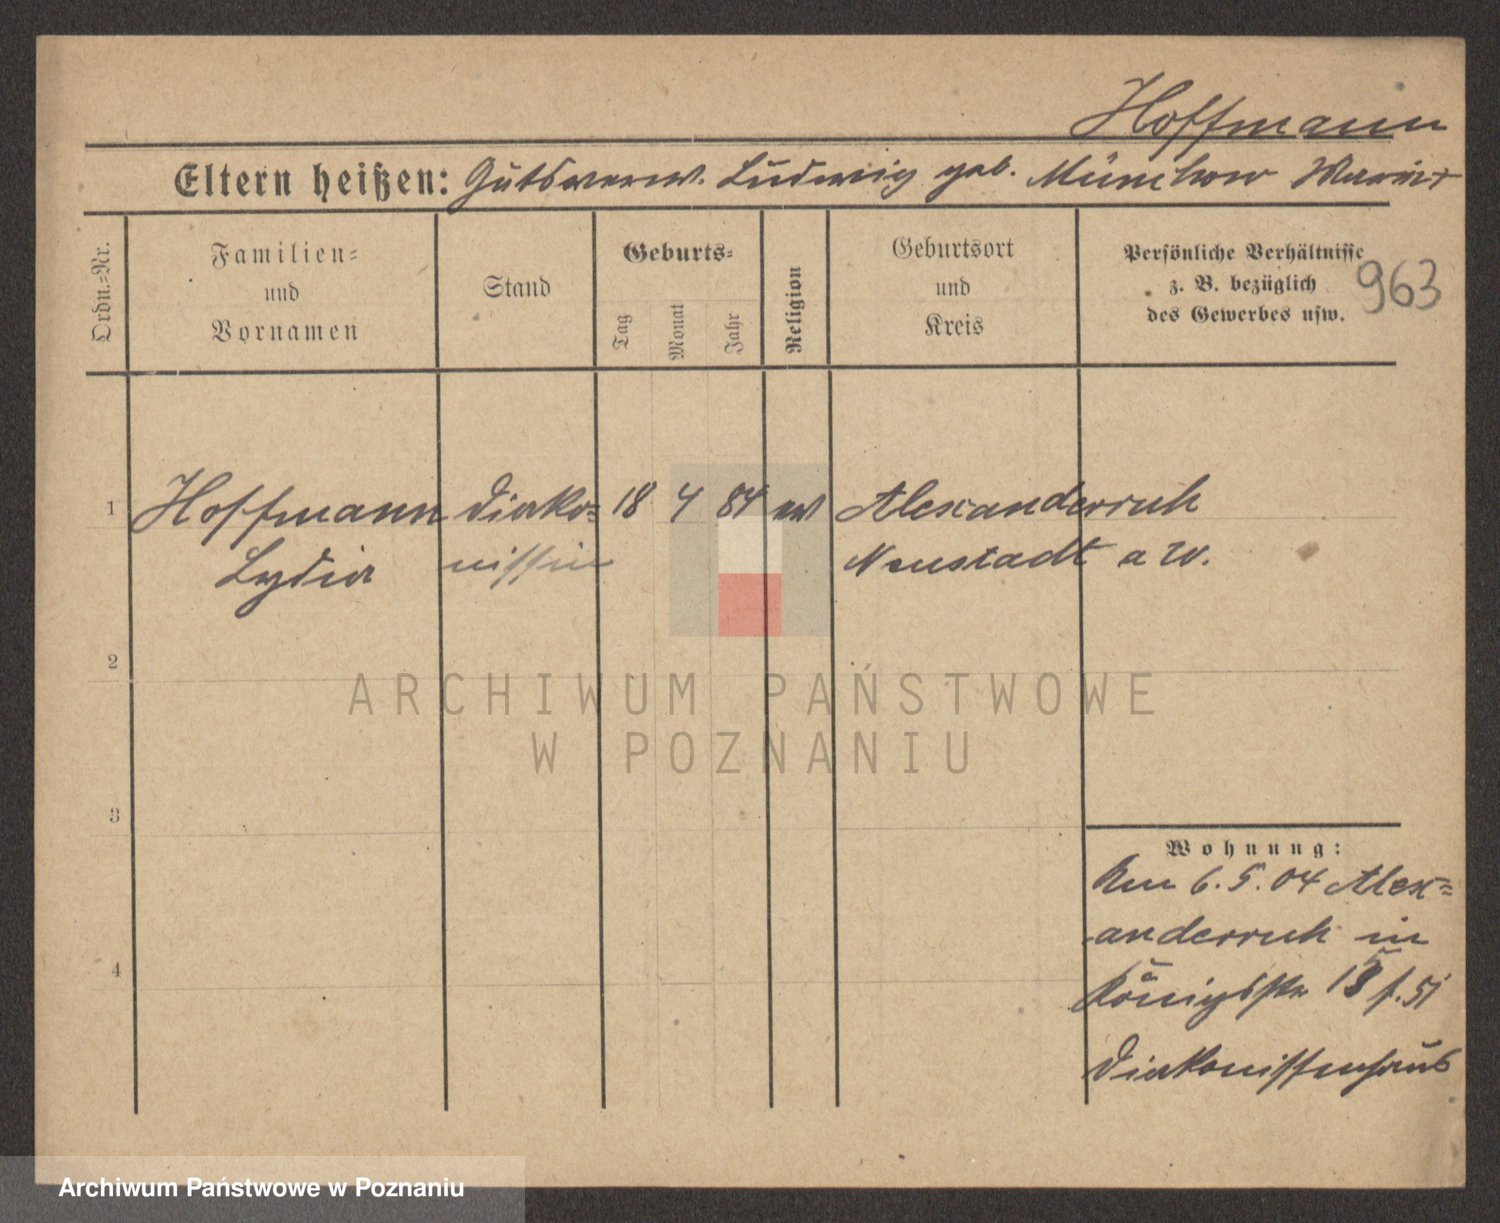 Hoffmann
Eltern heißen: Gutsverw. Ludwig geb. Münchow
963
Ordn.=Nr.
Familien=
und
Vornamen
Stand
Geburts=
Tag
Monat
Jahr
Religion
Geburtsort
und
Kreis
Persönliche Verhältnisse
z. B. bezüglich
des Gewerbes usw.
1 Hoffmann Diako= 18 4 84 ev Alexanderruh
Lydia nissin Neustadt a W.
2
3
4
Wohnung:
6. 5. 04 Alex=
anderruh in
Königstr
Diakonissenhaus
ARCHIWUM PAŃSTWOWE
W POZNANIU
Archiwum Państwowe w Poznaniu